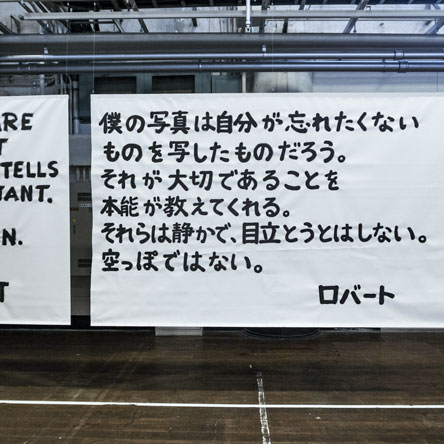 ARE
T
TELLS
TANT.
N.
T
僕の写真は自分が忘れたくない
ものを写したものだろう。
それが大切であることを
本能が教えてくれる。
それらは静かで、目立とうとはしない。
空っぽではない。
ロバート